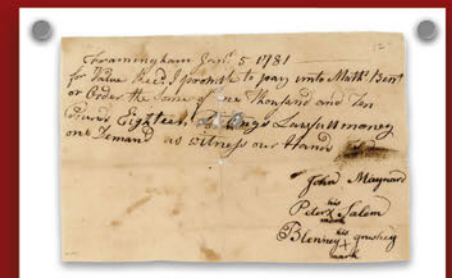 Framingham Janr. 5 1781
for Value Recd. I promise to pay unto Matths. Bent
or Order the Sume of one Thousand and Ten
Pounds Eighteen Lawfull money
one Demand as witness our Hands
John Maynard
his
Peter X Salem
mark
his
Blenney X
mark